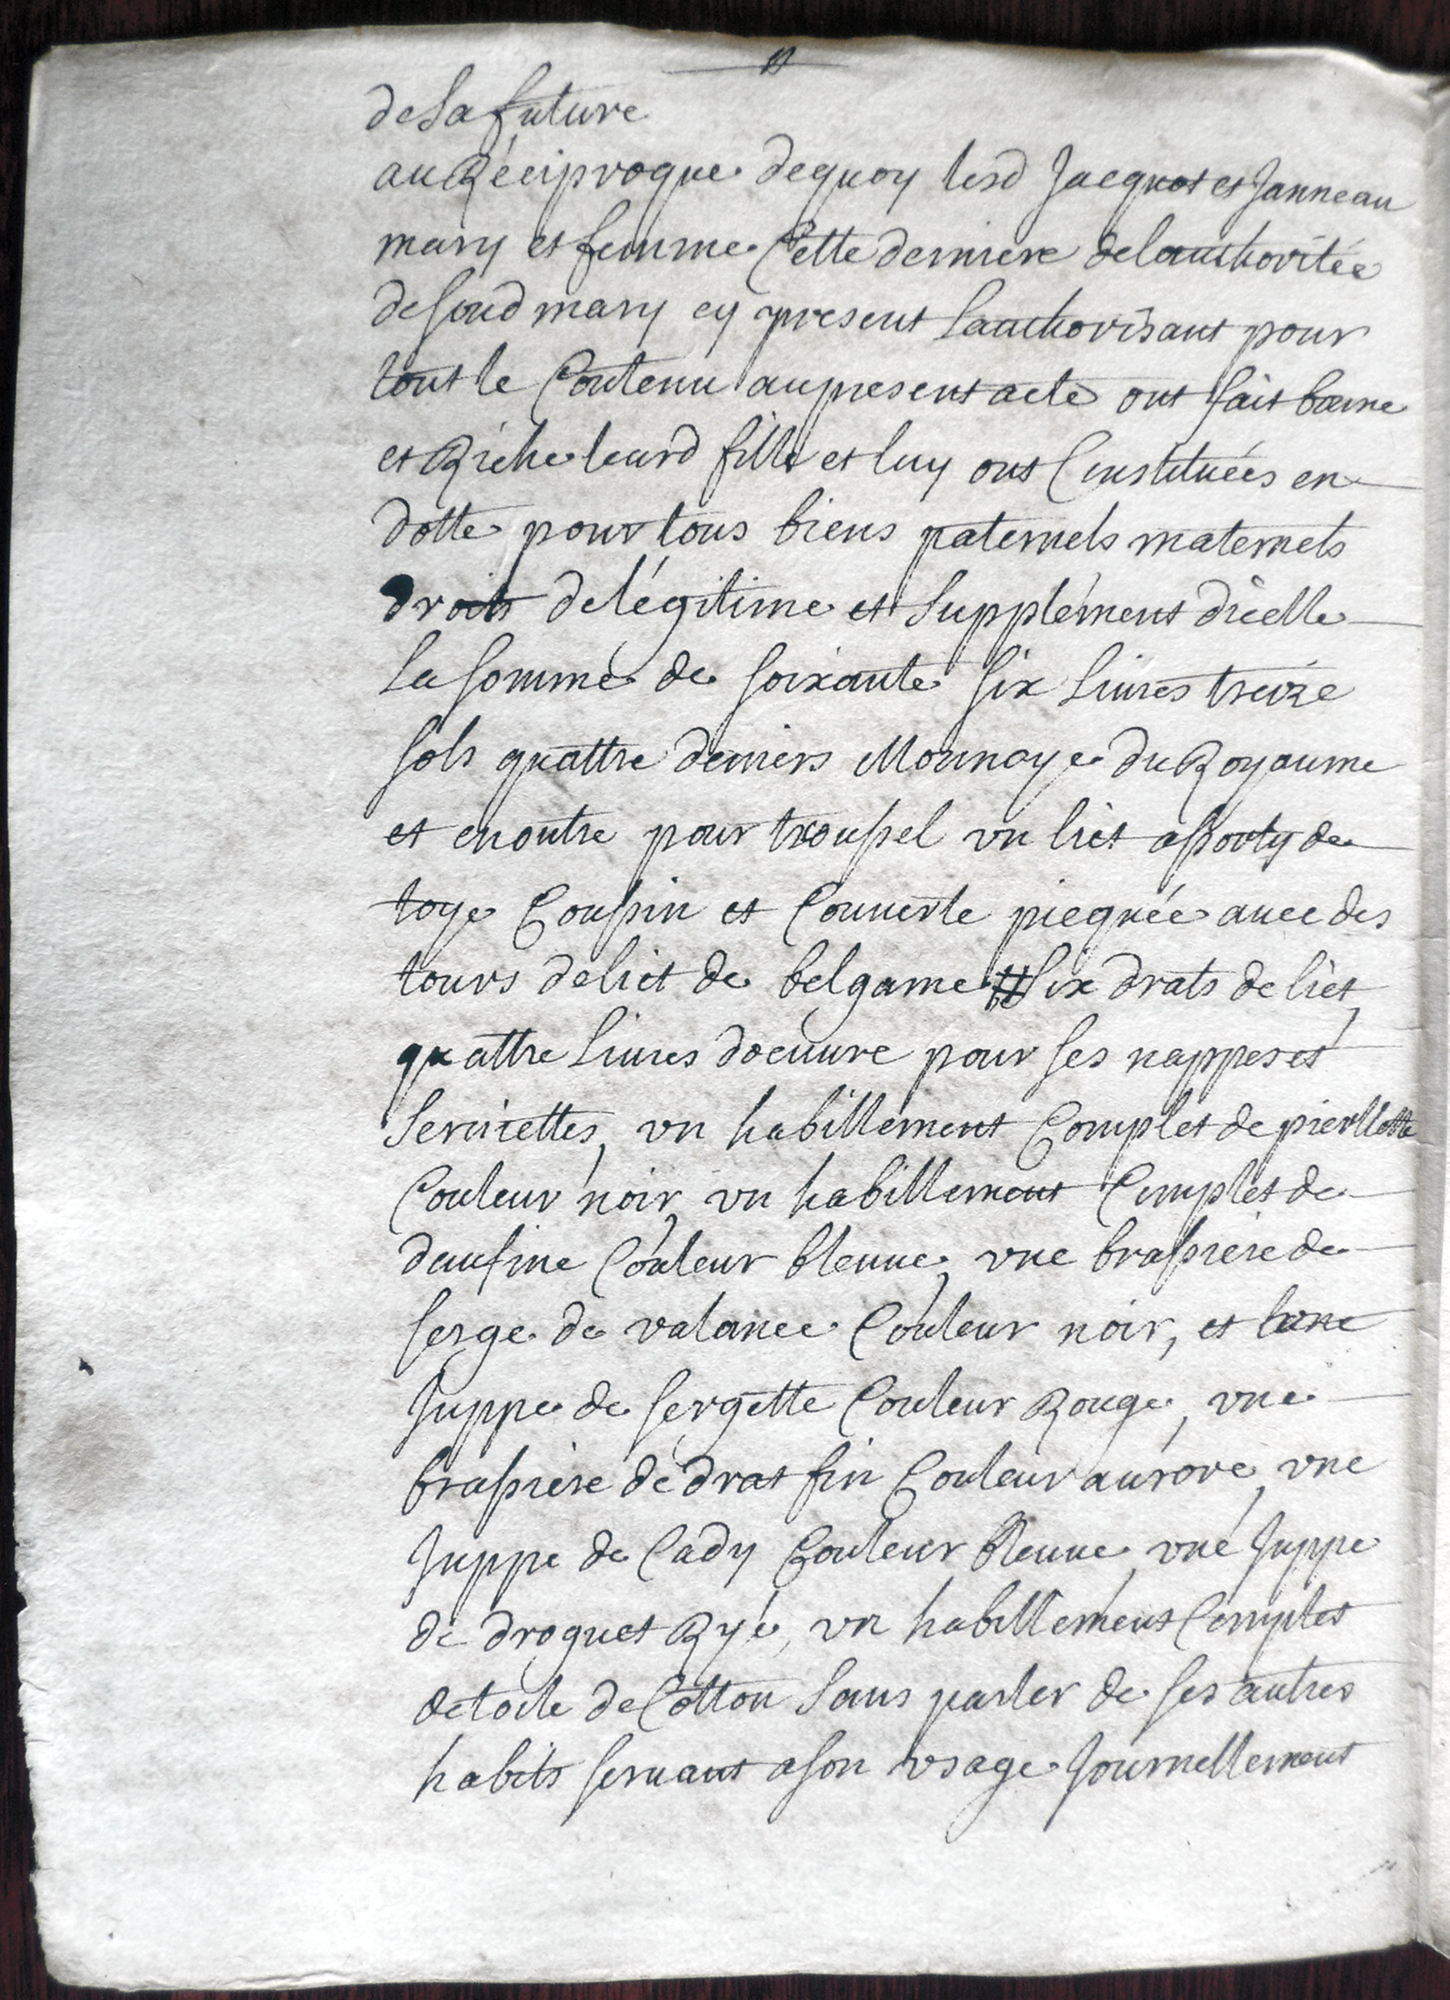 de la future
au Réciproque de quoy lesd Jacquot et Janneau
mary et femme Cette derniere de lauthoritée
de soud mary cy present Lauthorisant pour
tout le Contenu au present acte ont fait bonne
et Riche leurd fille et luy ont Constituées en
dotte pour tous biens paternels maternels
droits de légitime et Supplément dicelle
La somme de soixante six Liures treize
sols quattre deniers Monnoye du Royaume
et en outre pour troussel vn lict assorty de
toye Coussin et Couuerte piequée auec des
tours de lict de belgame # six drats de lict,
quattre Liures doeuure pour ses nappes et
Seruiettes, vn habillement Complet de
Couleur noir, vn habillement Complet de
daufine Couleur bleuue, vne brassiere de
serge de valance Couleur noir, et
Juppe de sergette Couleur Rouge, vne
brassiere de drat fin Couleur aurore, vne
Juppe de Cady Couleur bleuue, vne Juppe
de droguet Ryé, vn habillement Complet
de toile de Cotton Sans parler de ses autres
habits seruant a son vsage Journellement